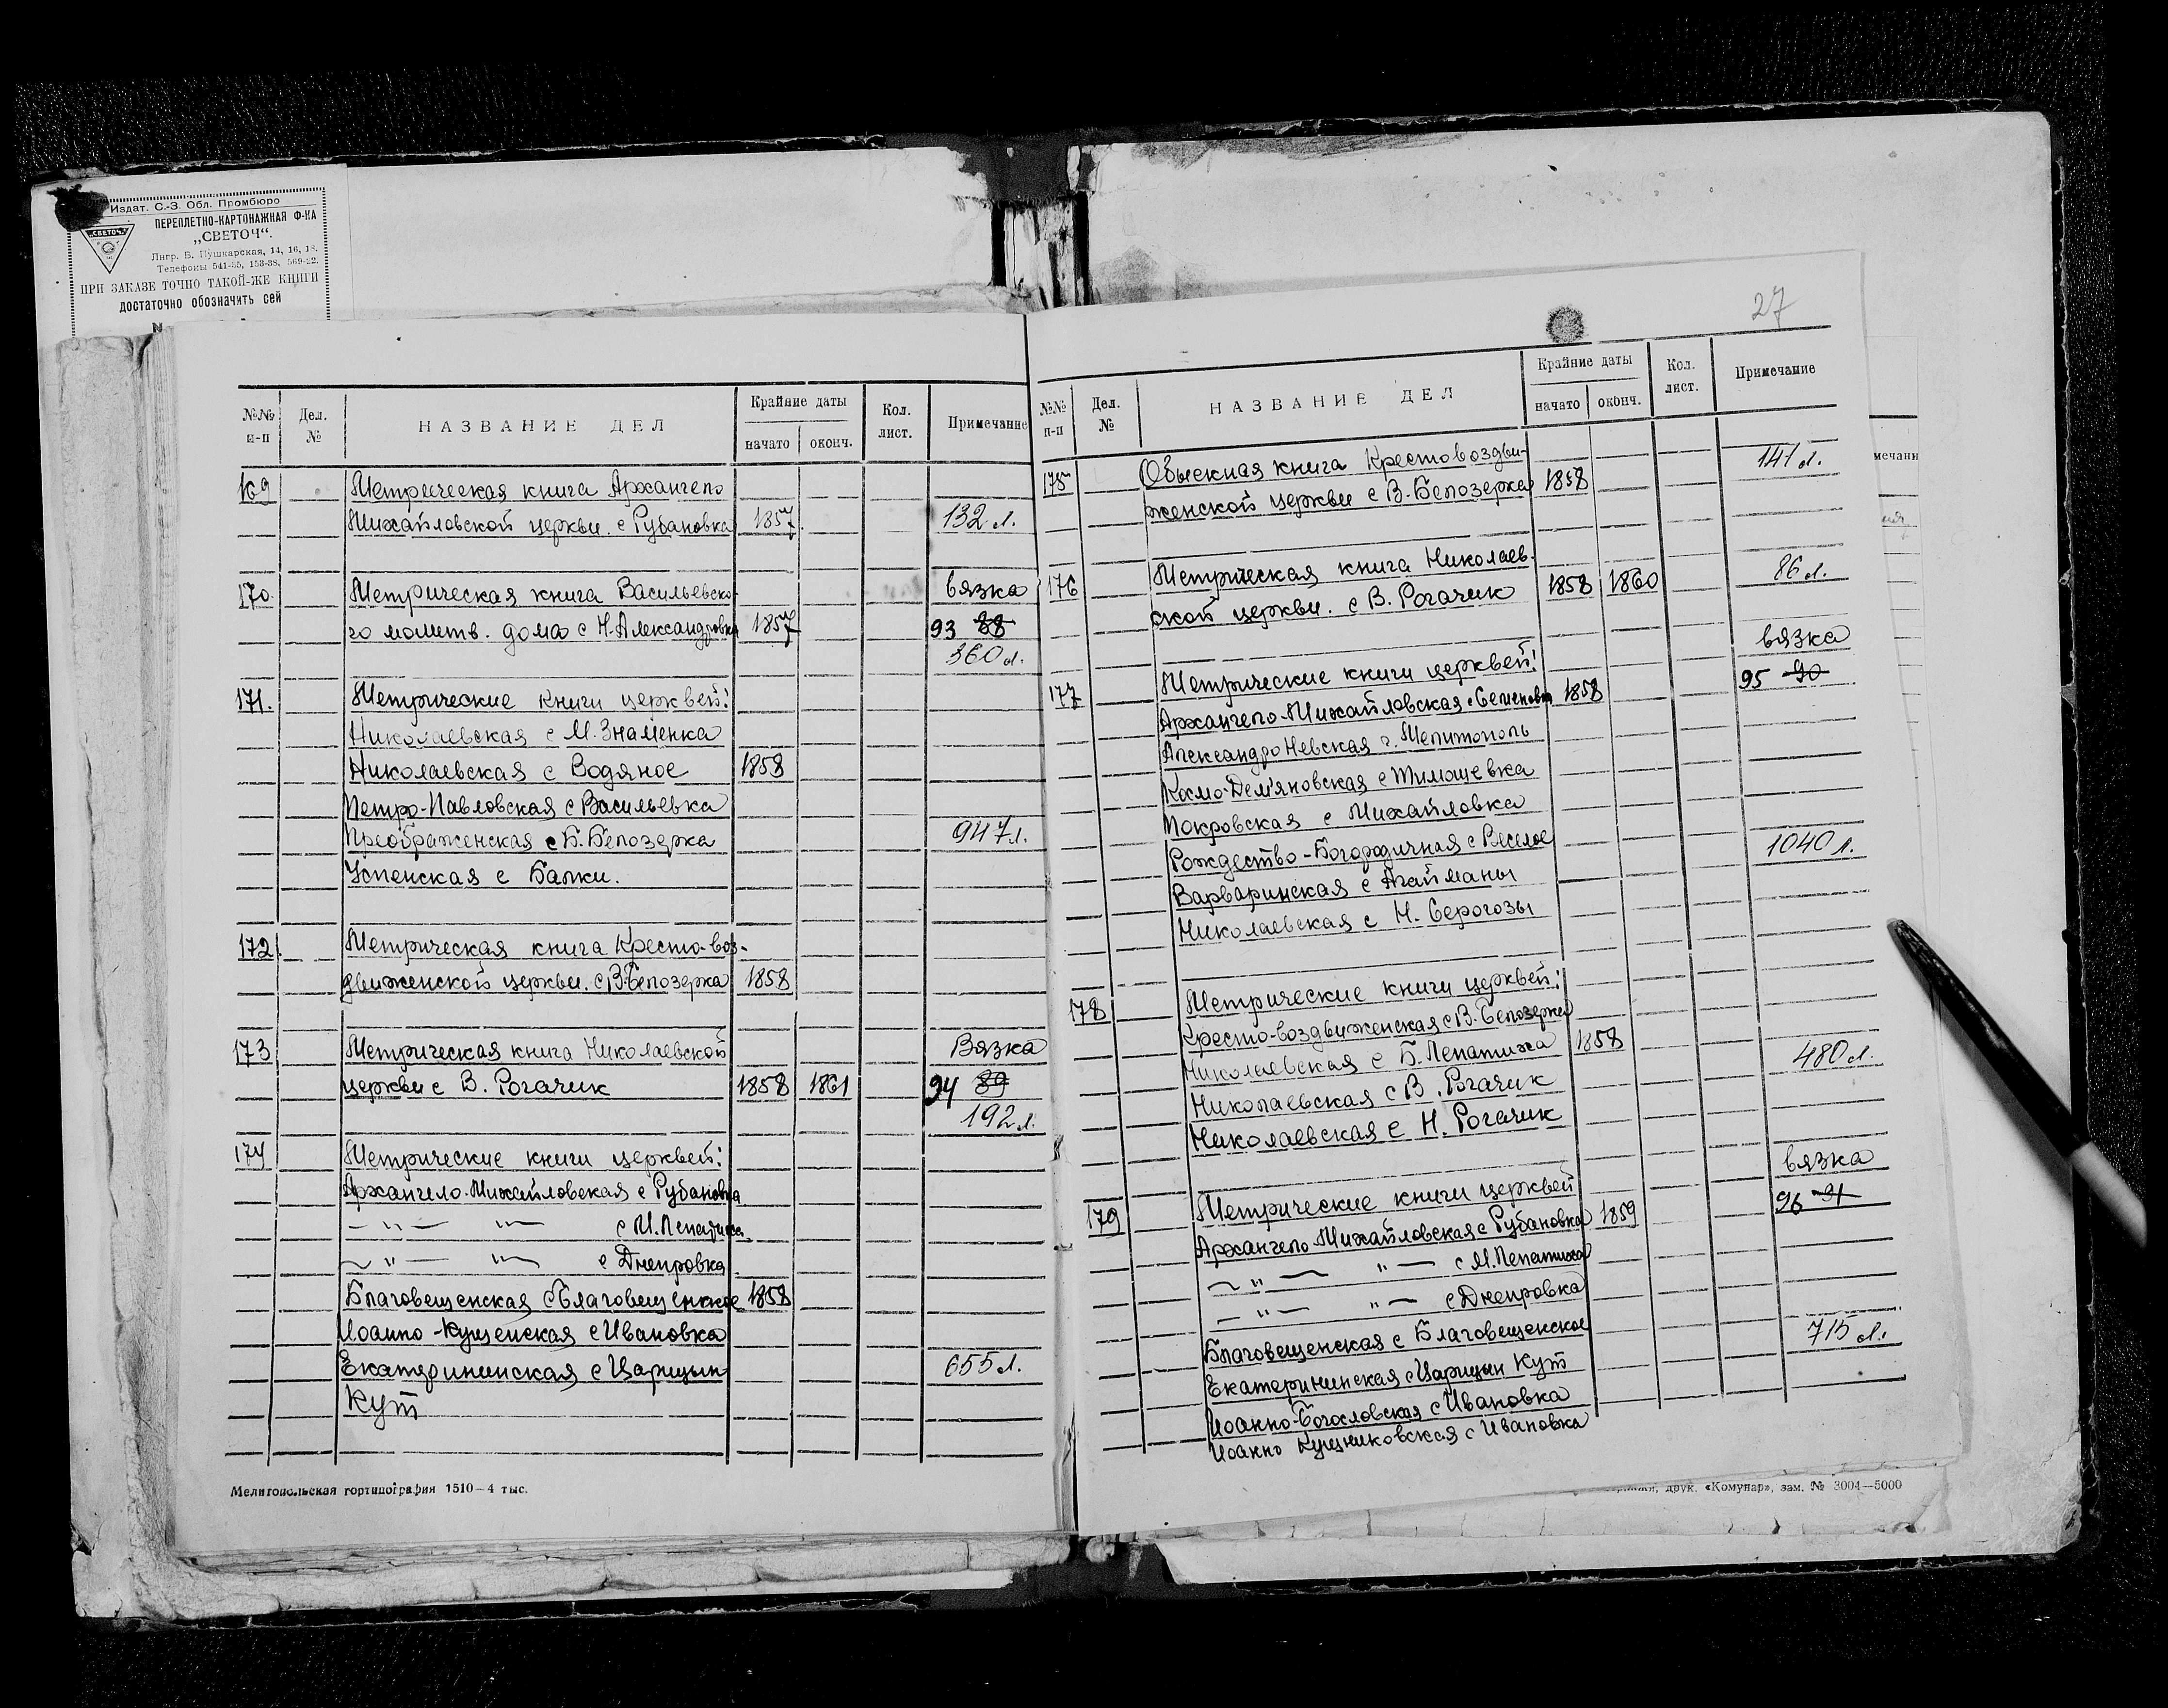 Издат. С.-З. Обл. Промбюро
ПЕРЕПЛЕТНО-КАРТОНАЖНАЯ Ф-КА
„СВЕТОЧ“
„СВЕТОЧ“.
Лнгр. Б. Пушкарская, 14, 16, 18.
Телефоны 541-35, 153-38, 569-22.
ПРИ ЗАКАЗЕ ТОЧНО ТАКОЙ-ЖЕ КНИГИ
достаточно обозначить сей
№№ п-п Дел. № НАЗВАНИЕ ДЕЛ Крайние даты начато оконч. Кол. лист. Примечание
169 Метрическая книга Архангело
Михайловской церкви. с Рубановка 1857 132 л.
170. Метрическая книга Васильевско- вязка
го молитв. дома с Н. Александровка 1857 93 88
360 л.
171. Метрические книги церквей:
Николаевская с М. Знаменка
Николаевская с Водяное 1858
Петро-Павловская с Васильевка
Преображенская с Б. Белозерка 947 л.
Успенская с Балки.
172. Метрическая книга Кресто-воз-
движенской церкви. с В. Белозерка 1858
173 Метрическая книга Николаевской Вязка
церкви с В. Рогачик 1858 1861 94 89
192 л.
174 Метрические книги церквей:
Архангело-Михайловская с Рубановка
— " — " — с М. Лепатиха
— " — " — с Днепровка
Благовещенская с Благовещенское 1858
Иоанно-Кущенская с Ивановка
Екатерининская с Царицын 655 л.
Кут
Мелитопольская гортипография 1510—4 тыс.
27
№№ п-п Дел. № НАЗВАНИЕ ДЕЛ Крайние даты начато оконч. Кол. лист. Примечание
175 Обыскная книга Крестовоздви- 141 л.
женской церкви с В. Белозерка 1858
176 Метрическая книга Николаев- 86 л.
ской церкви. с В. Рогачик 1858 1860
вязка
177 Метрические книги церквей: 95 90
Архангело-Михайловская с Семеновка 1858
Александро Невская г. Мелитополь
Космо-Дем'яновская с Тимошевка
Покровская с Михайловка
Рождество-Богородичная с Веселое 1040 л.
Варваринская с Агайманы
Николаевская с Н. Серогозы
178 Метрические книги церквей:
Кресто-воздвиженская с В. Белозерка
Николаевская с Б. Лепатиха 1858 480 л.
Николаевская с В. Рогачик
Николаевская с Н. Рогачик
вязка
179 Метрические книги церквей 96 91
Архангело Михайловская с Рубановка 1859
— " — " — с М. Лепатиха
— " — " — с Днепровка
Благовещенская с Благовещенское 715 л.
Екатерининская с Царицын Кут
Иоанно-Богословская с Ивановка
Иоанно Кущниковская с Ивановка
мечани
друк. «Комунар», зам. № 3004—5000